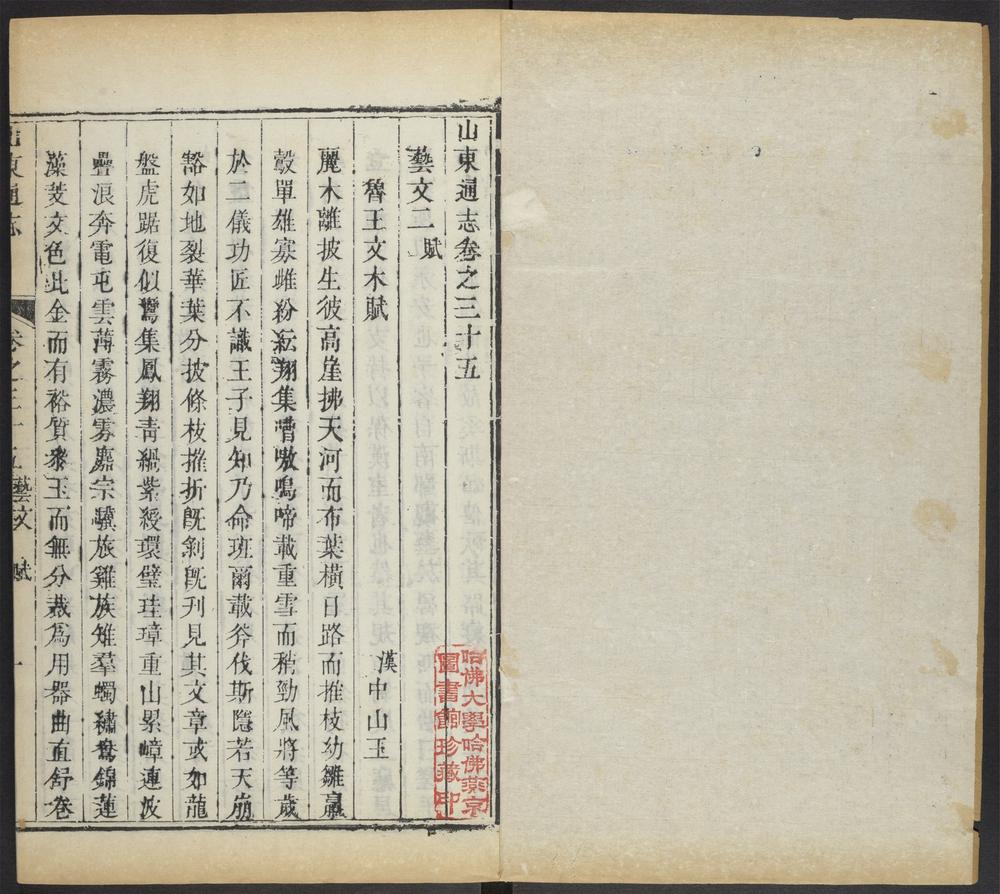 山東通志卷之三十五
藝文二賦
魯王文木賦
漢中山王
麗木離披生彼高崖拂天河而布葉橫日路而推枝幼雛羸
鷇單雄寡雌紛紜翔集嘈嗷鳴啼載重雪而稍勁風將等歲
於二儀功匠不識王子見知乃命班爾載斧伐斯隱若天崩
豁如地裂華葉分披條枝摧折旣剝旣刋見其文章或如龍
盤虎踞復似鸞集鳳翔靑緺紫綬環璧珪璋重山累嶂連波
疊浪奔電屯雲薄霧濃雰麚宗驥旅雞族雉羣蠋繡鴦錦蓮
藻芰文色比金而有裕質參玉而無分裁爲用器曲直舒卷
山東通志
卷之三十五藝文 賦
一
哈佛大學哈佛燕京
圖書館珍藏印